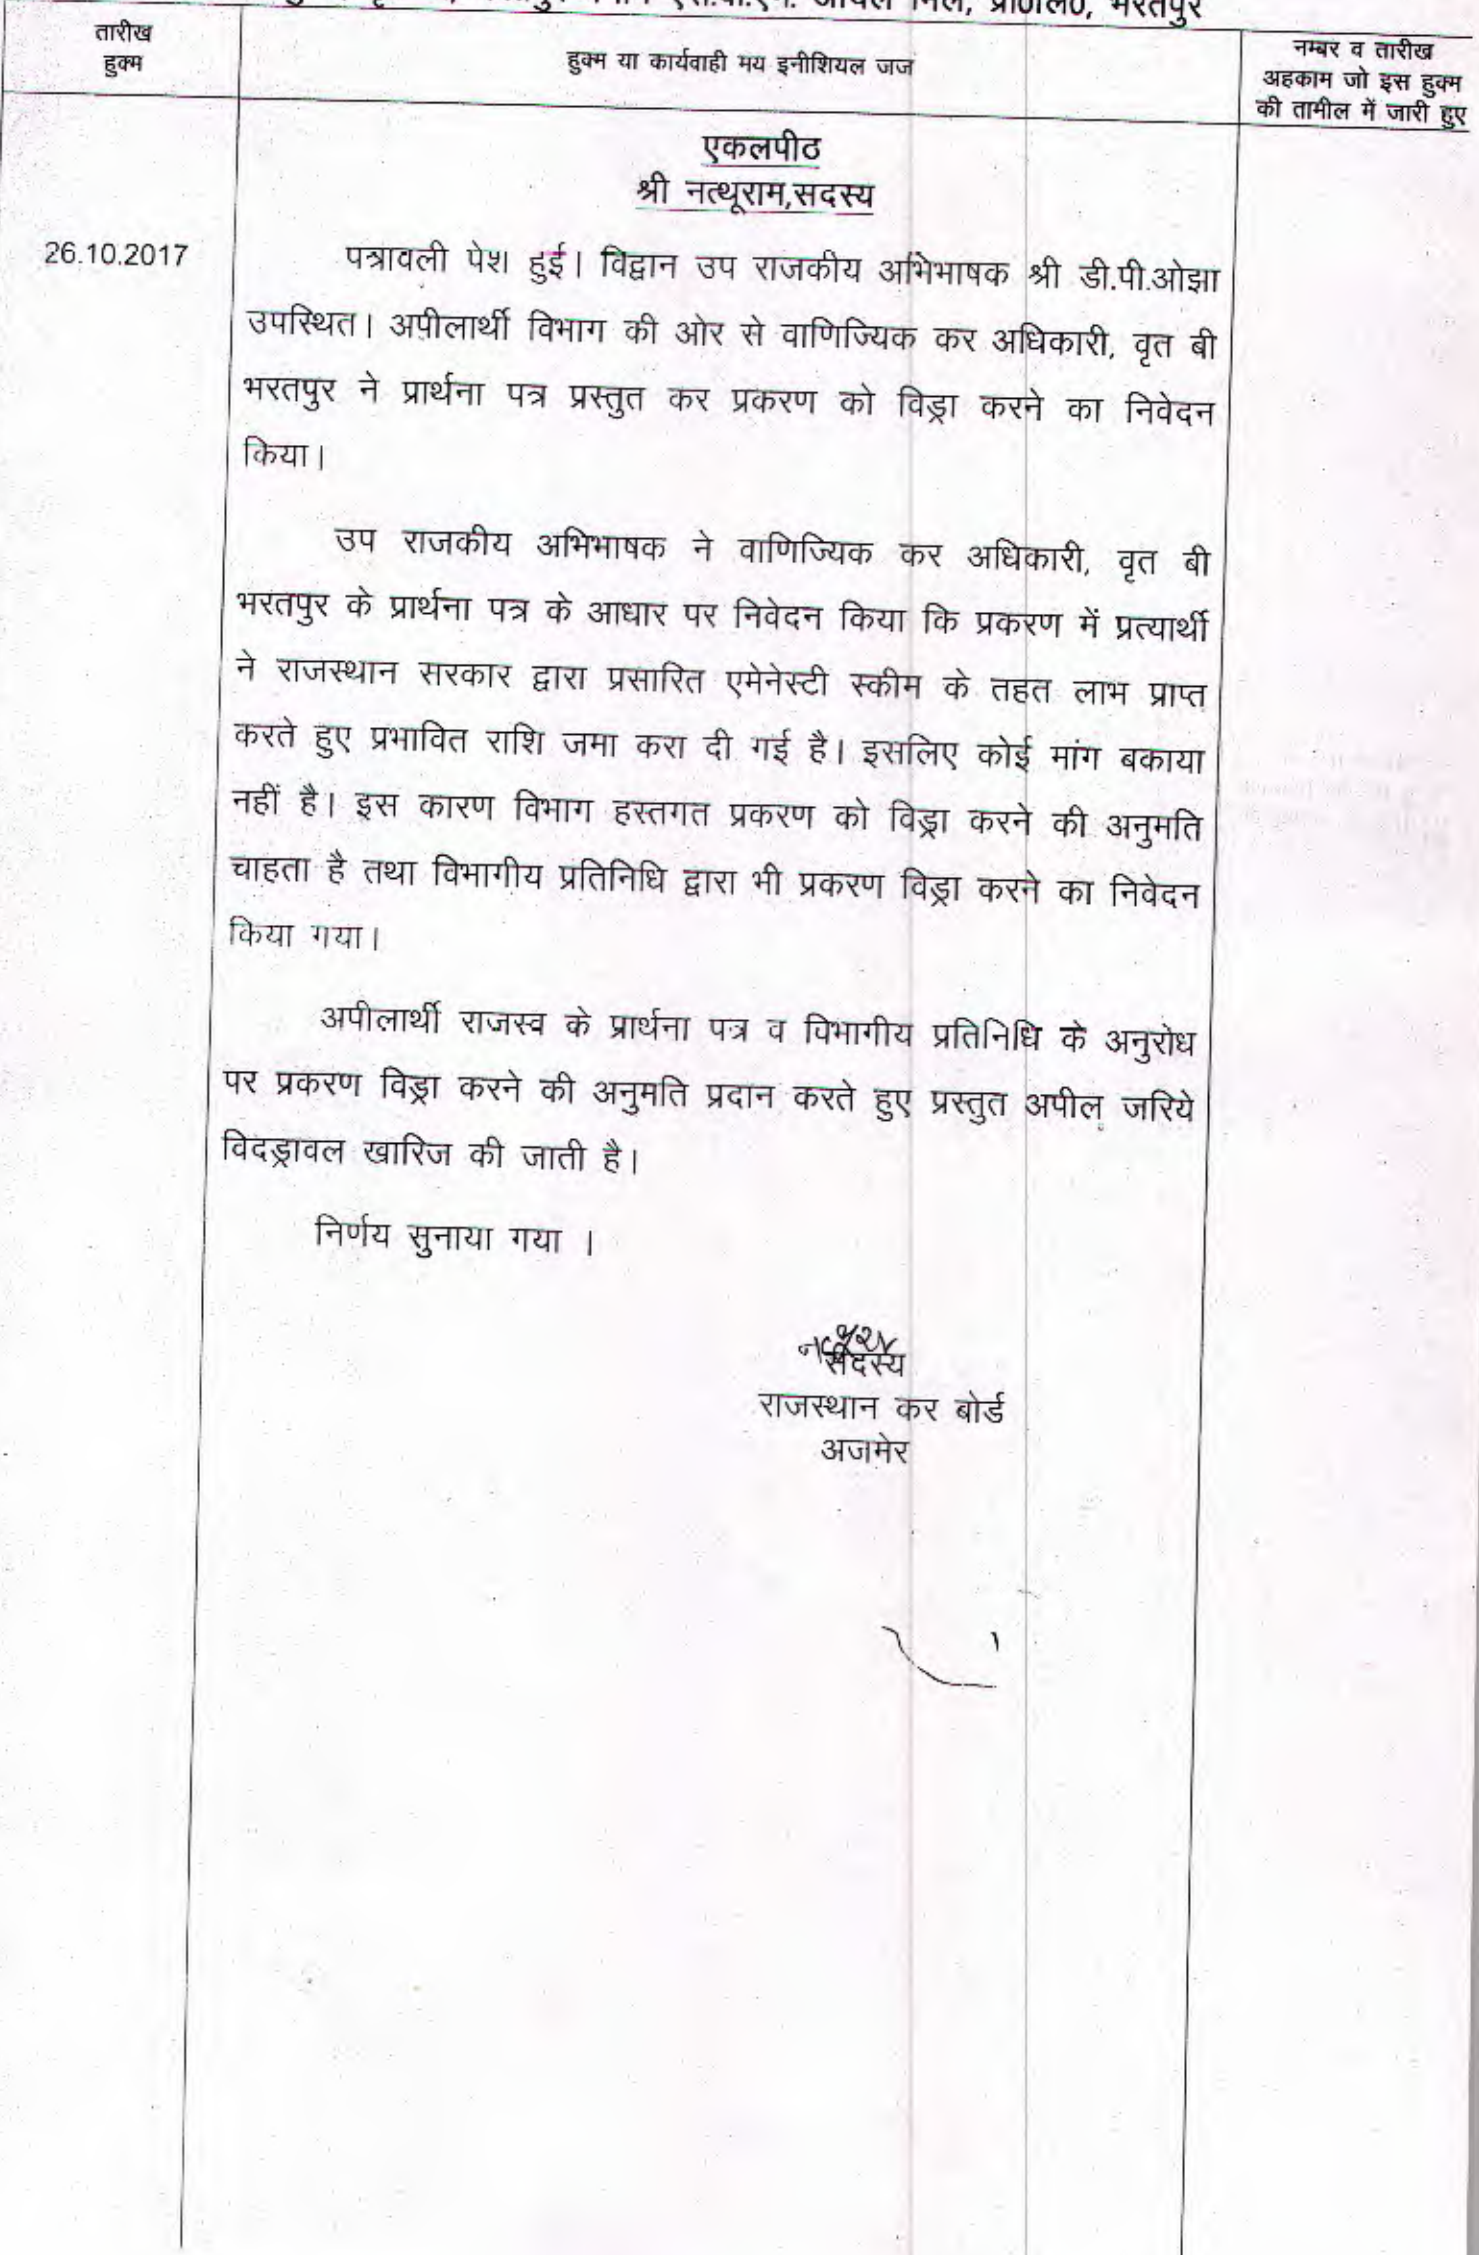 ऑयल मिल, प्रा०लि०, भरतपुर
तारीख
हुक्म
हुक्म या कार्यवाही मय इनीशियल जज
नम्बर व तारीख
अहकाम जो इस हुक्म
की तामील में जारी हुए
एकलपीठ
श्री नत्थूराम,सदस्य
26.10.2017
पत्रावली पेश हुई। विद्वान उप राजकीय अभिभाषक श्री डी.पी.ओझा
उपस्थित। अपीलार्थी विभाग की ओर से वाणिज्यिक कर अधिकारी, वृत बी
भरतपुर ने प्रार्थना पत्र प्रस्तुत कर प्रकरण को विड्रा करने का निवेदन
किया।
उप राजकीय अभिभाषक ने वाणिज्यिक कर अधिकारी, वृत बी
भरतपुर के प्रार्थना पत्र के आधार पर निवेदन किया कि प्रकरण में प्रत्यार्थी
ने राजस्थान सरकार द्वारा प्रसारित एमेनेस्टी स्कीम के तहत लाभ प्राप्त
करते हुए प्रभावित राशि जमा करा दी गई है। इसलिए कोई मांग बकाया
नहीं है। इस कारण विभाग हस्तगत प्रकरण को विड्रा करने की अनुमति
चाहता है तथा विभागीय प्रतिनिधि द्वारा भी प्रकरण विड्रा करने का निवेदन
किया गया।
अपीलार्थी राजस्व के प्रार्थना पत्र व विभागीय प्रतिनिधि के अनुरोध
पर प्रकरण विड्रा करने की अनुमति प्रदान करते हुए प्रस्तुत अपील जरिये
विदड्रावल खारिज की जाती है।
निर्णय सुनाया गया ।
सदस्य
राजस्थान कर बोर्ड
अजमेर